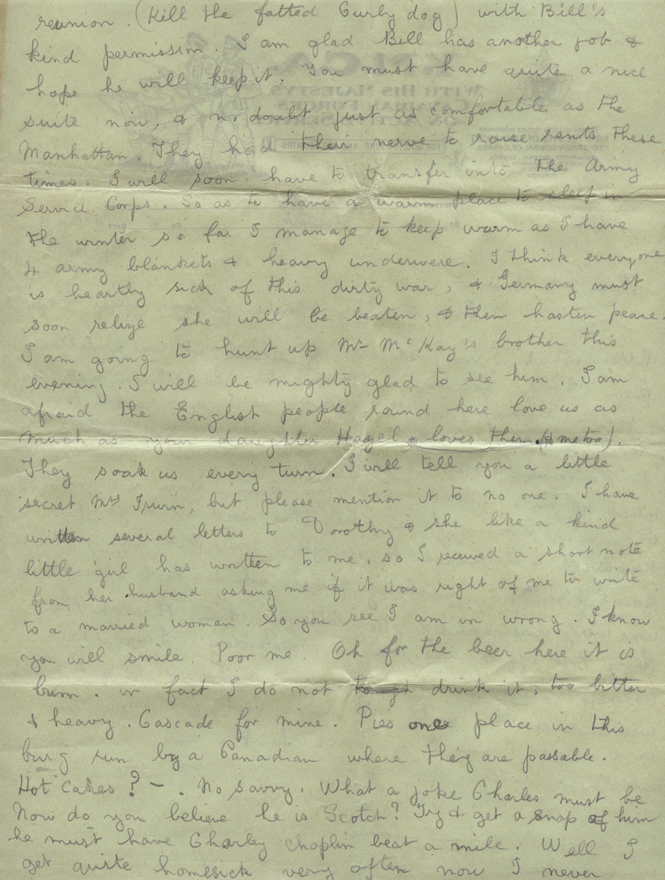 reunion. (Kill the fatted Curly dog) with Bill's
kind permission. I am glad Bill has another job &
hope he will keep it. You must have quite a nice
suite now, & no doubt just as comfortable as the
Manhattan. They had their nerve to raise rents these
times. I will soon have to transfer into the Army
Service Corps. So as to have a warm place to sleep in
the winter so far I manage to keep warm as I have
4 army blankets & heavy underwere. I think everyone
is heartly sick of this dirty war, & Germany must
soon relize she will be beaten, & then hasten peace.
I am going to hunt up Mr McKay's brother this
evening. I will be mighty glad to see him. I am
afraid the English people round here love us as
much as your daughter Hazel loves them (& me too).
They soak us every turn. I will tell you a little
secret Mrs Irwin, but please mention it to no one. I have
written several letters to Dorothy & she like a kind
little girl has written to me, so I received a short note
from her husband asking me if it was right of me to write
to a married woman. So you see I am in wrong. I know
you will smile. Poor me Oh for the beer here it is
bum. in fact I do not drink it, too bitter
& heavy. Cascade for mine. Pies one place in this
burg run by a Canadian where they are passable.
Hot cakes? - . No savvy. What a joke Charles must be
Now do you believe he is Scotch? Try & get a snap of him
he must have Charley chaplin beat a mile. Well I
get quite homesick very often now I never
WITH HIS MAJESTY'S